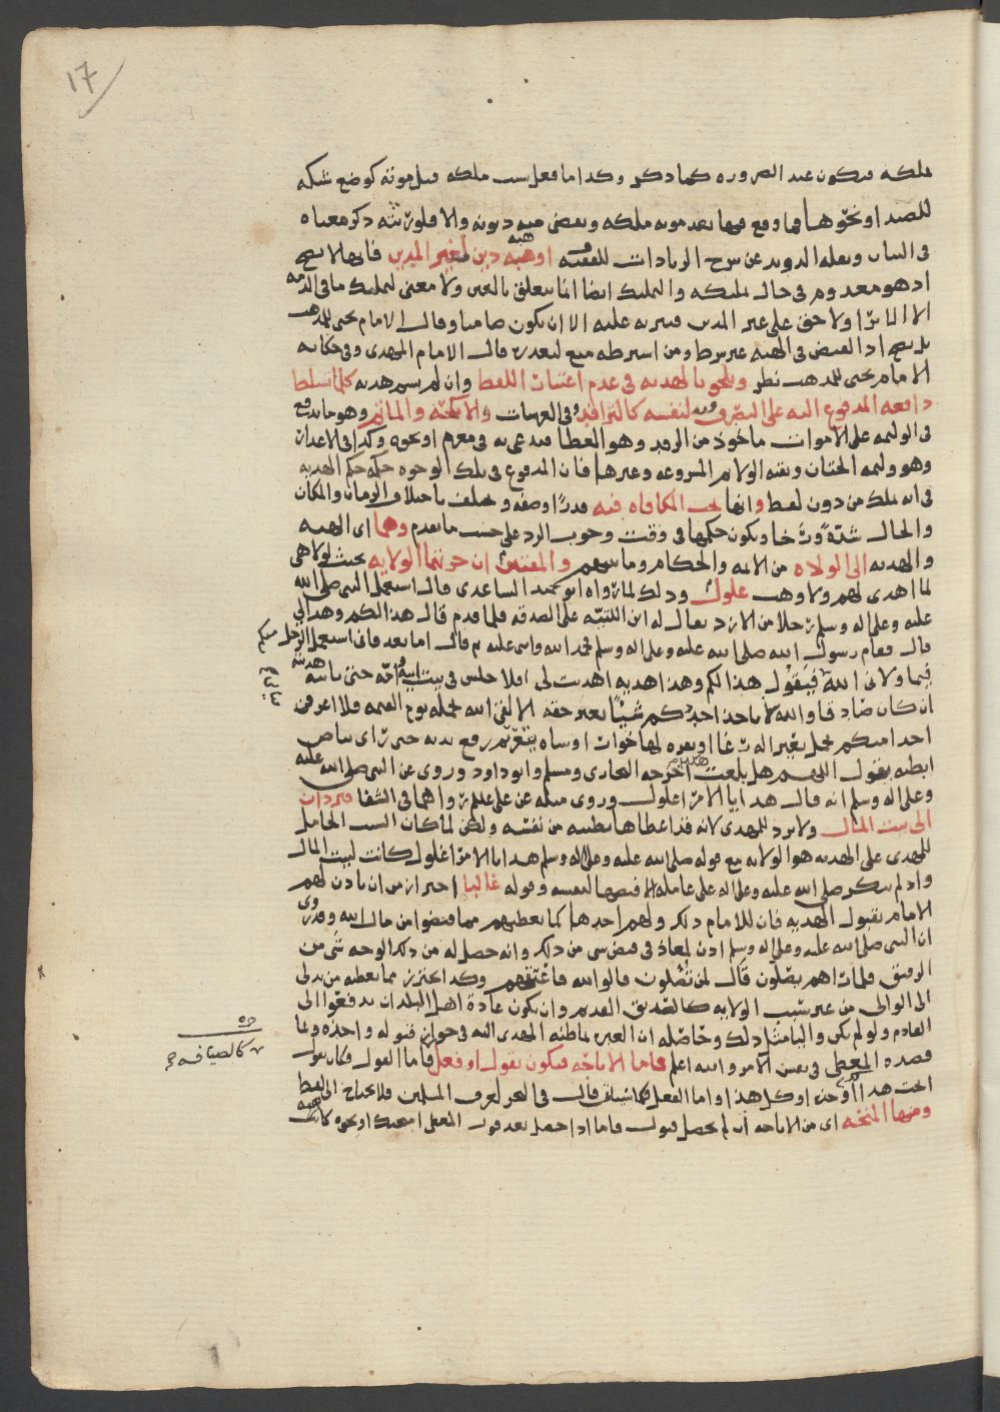 17
ملكه فيكون عند الضروره كما ذكر وكذا ما فعل سبب ملكه قبل موته كوضع شبكه
للصيد او نحوها فما وقع فيها بعد موته ملكه ويقضى منه ديونه والا فلورثته ذكر معناه
فى البيان ونقله الدويد عن شرح الزيادات للفقيه ف او هبه دين لغير المدين فانها لا تصح
اذ هو معدوم فى حال تمليكه والتمليك ايضا انما يتعلق بالعين ولا معنى لتمليك ما فى الذمه
الا الابرا ولا حق على غير المدين فيبريه عليه الا ان يكون ضامنا وقال الامام يحيى للمذهب
بل يصح اذ القبض فى الهبه غير شرط ومن اشرطه منع لتعذره قال الامام المهدى وفى حكايه
الامام يحيى للمذهب نظر ويلحق بالهديه فى عدم اعتبار اللفظ وان لم يسم هديه كلما سلط
دافعه المدفوع اليه على التصرف فيه لنفسه كالترافد فى العرسات والانكحه والماتم وهو ما يدفع
فى الوليمه على الاموات ماخوذ من الرفد وهو العطا فيدعى به فى معرم او نحوه وكذا فى الاعذار
وهو وليمه الختان وبقيه الولايم المشروعه وغيرها فان المدفوع فى تلك الوجوه حكمه حكم الهديه
فى انه ملك من دون لفظ وانها تجب المكافاه فيه قدرًا وصفه ويختلف باختلاف الزمان والمكان
والحال شدّهً ورخا ويكون حكمها فى وقت وجوب الرد على حسب ما تقدم وهما اى الهبه
والهديه الى الولاه من الايمه والحكام وما بينهم والمفتين ان حرمتهما الولايه بحيث لولا هى
لما اهدى لهم ولا وهب غلول وذلك لما رواه ابو حميد الساعدى قال استعمل النبى صلى الله
عليه وعلى اله وسلم رجلا من الازد يقال له ابن اللتبيّه على الصدقه فلما قدم قال هذا لكم وهذا لى
قال فقام رسول الله صلى الله عليه وعلى اله وسلم فحمد الله واثنى عليه ثم قال اما بعد فانى استعمل الرجل منكم
فيما ولانى الله فيَقُول هذا لكم وهذا هديه اهديت لى افلا جلس فى بيت ابيه وامّه حتى تاتيه هديته
ان كان صادقا والله لا ياخذ احدكم شيئًا بغير حقه الا لقى الله يحمله يوم القيمه فلا اعرفن
احدا منكم يحمل بعير اله رغا او بقره لها خوار او ساه تيعر ثم رفع يديه حتى راى بياض
ابطيه يقول اللهم هل بلغت اخرجه البخارى ومسلم وابو داود وروى عن النبى صلى الله عليه
وعلى اله وسلم انه قال هدايا الامرا غلول وروى مثله عن على علىلم رواهما فى الشفا فيردان
الى بيت المال ولا يرد للمهدى لانه قد اعطاها بطيبه من نفسه ولكن لما كان السبب الحامل
للمهدى على الهديه هو الولايه مع قوله صلى الله عليه وعلى اله وسلم هدايا الامرا غلول كانت لبيت المال
واذ لم ينكر صلى الله عليه وعلى اله على عامله الا قبضها لنفسه وقوله غالبا احتراز من ان ياذن لهم
الامام بقبول الهديه فان للامام ذلك ولهم اخذها كما يعطيهم مما قبضوا من مال الله وقد روى
ان النبى صلى الله عليه وعلى اله وسلم اذن لمعاذ فى قبض شى من ذلك وانه حصل له من ذلك الوجه شى من
الرقيق فلما راهم يصلون قال لمن تُصلون قالوا لله فاعتقهم وكذا احترز مما يعطيه من يدلى
الى الوالى من غير سبب الولايه كالصديق القديم وان يكون عادة اهل البلدان يدفعوا الى
القادم ولو لم يكن واليا مثل ذلك وحاصله ان العبره بما ظنه المهدى اليه فى جواز قبوله واخذه وبما
قصده المعطى فى نفس الامر والله اعلم فاما الاباحه فيكون بقول او فعل فاما القول فكان يقول
ابحت هذا او خذه او كل هذا واما الفعل فكما سياتى قال فى البحر لعرف المسلمين فلا يحتاج الى لفظ
ومنها المنحه اى من الاباحه ان لم يحصل قبول فاما اذا حصل بعد قول المعطى امنحتك او نحوه كانت هبه
كالضيافه